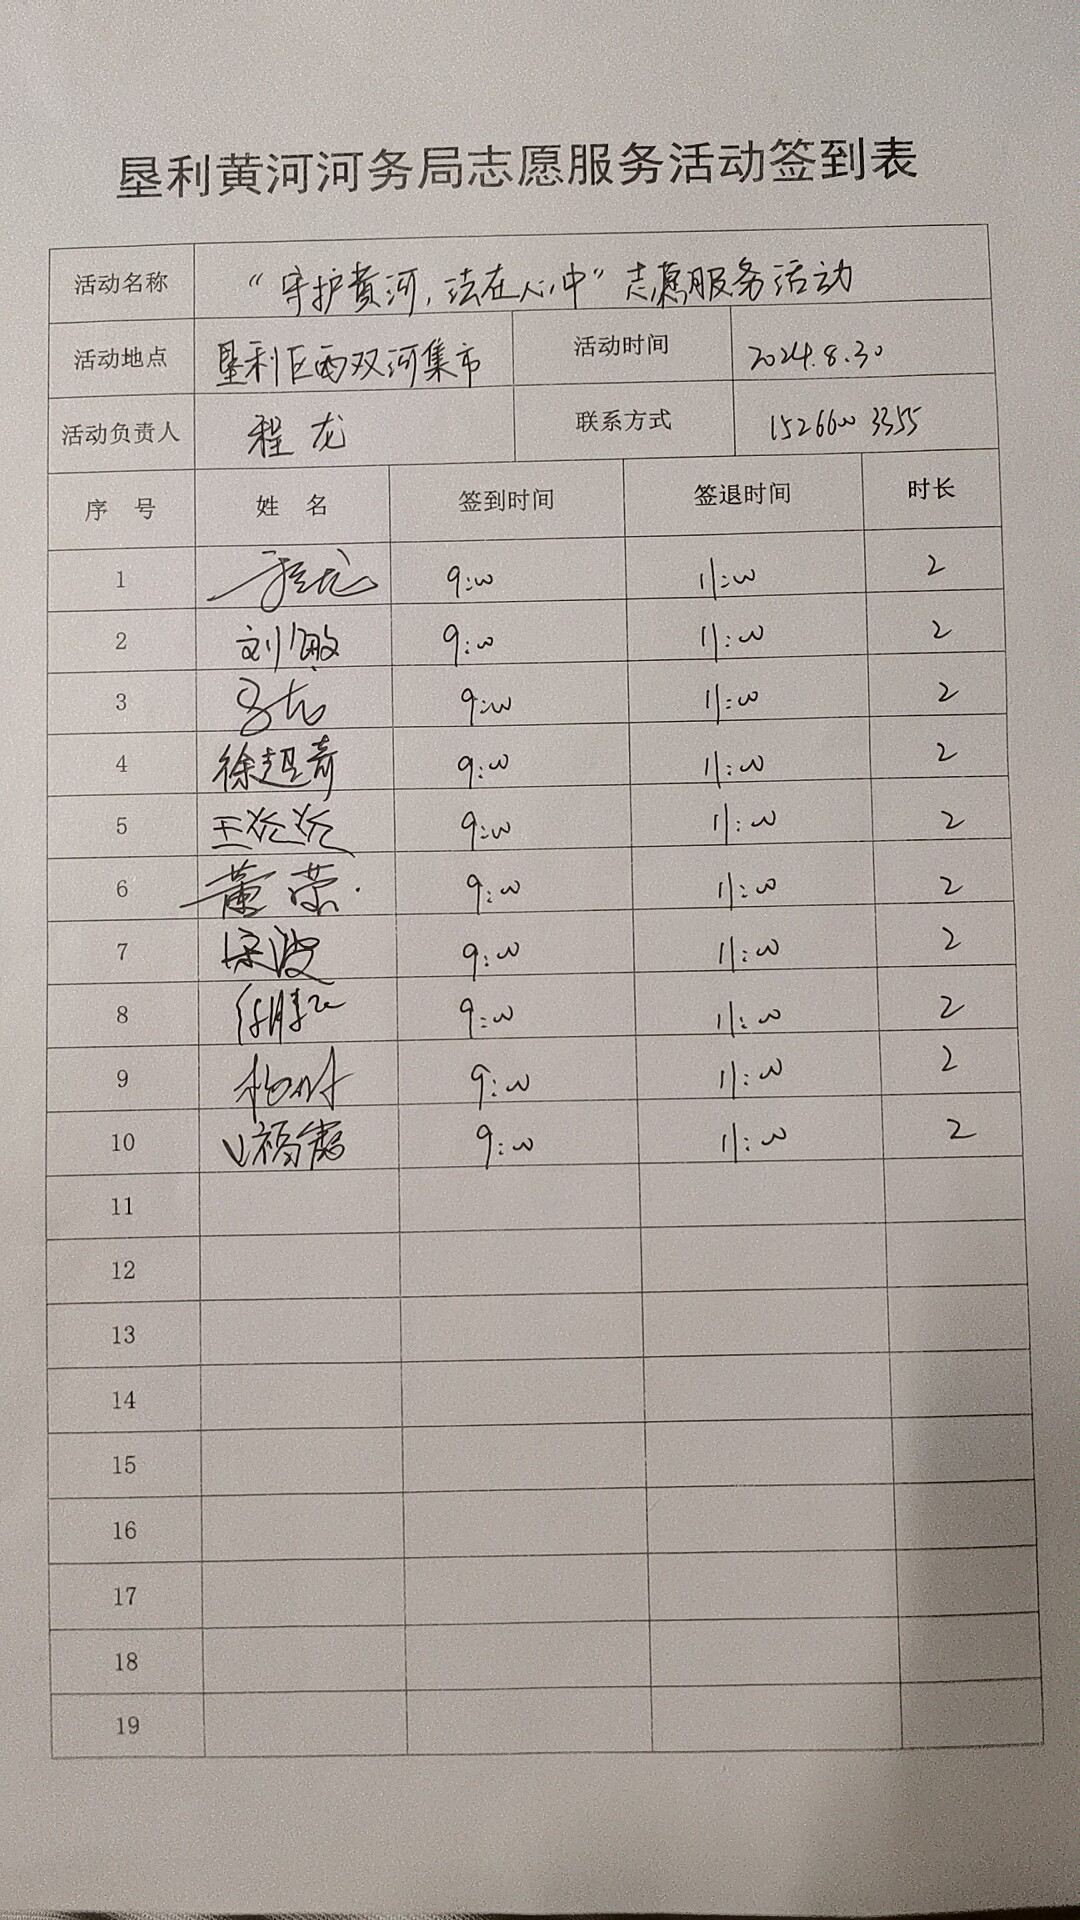 垦利黄河河务局志愿服务活动签到表
活动名称 “守护黄河，法在心中”志愿服务活动
活动地点 垦利区西双河集市 活动时间 2024.8.30
活动负责人 程龙 联系方式 15266003355
序 号 姓 名 签到时间 签退时间 时长
1 程龙 9:00 11:00 2
2 刘敏 9:00 11:00 2
3 9:00 11:00 2
4 徐超奇 9:00 11:00 2
5 9:00 11:00 2
6 董蕾 9:00 11:00 2
7 宋波 9:00 11:00 2
8 9:00 11:00 2
9 9:00 11:00 2
10 9:00 11:00 2
11
12
13
14
15
16
17
18
19